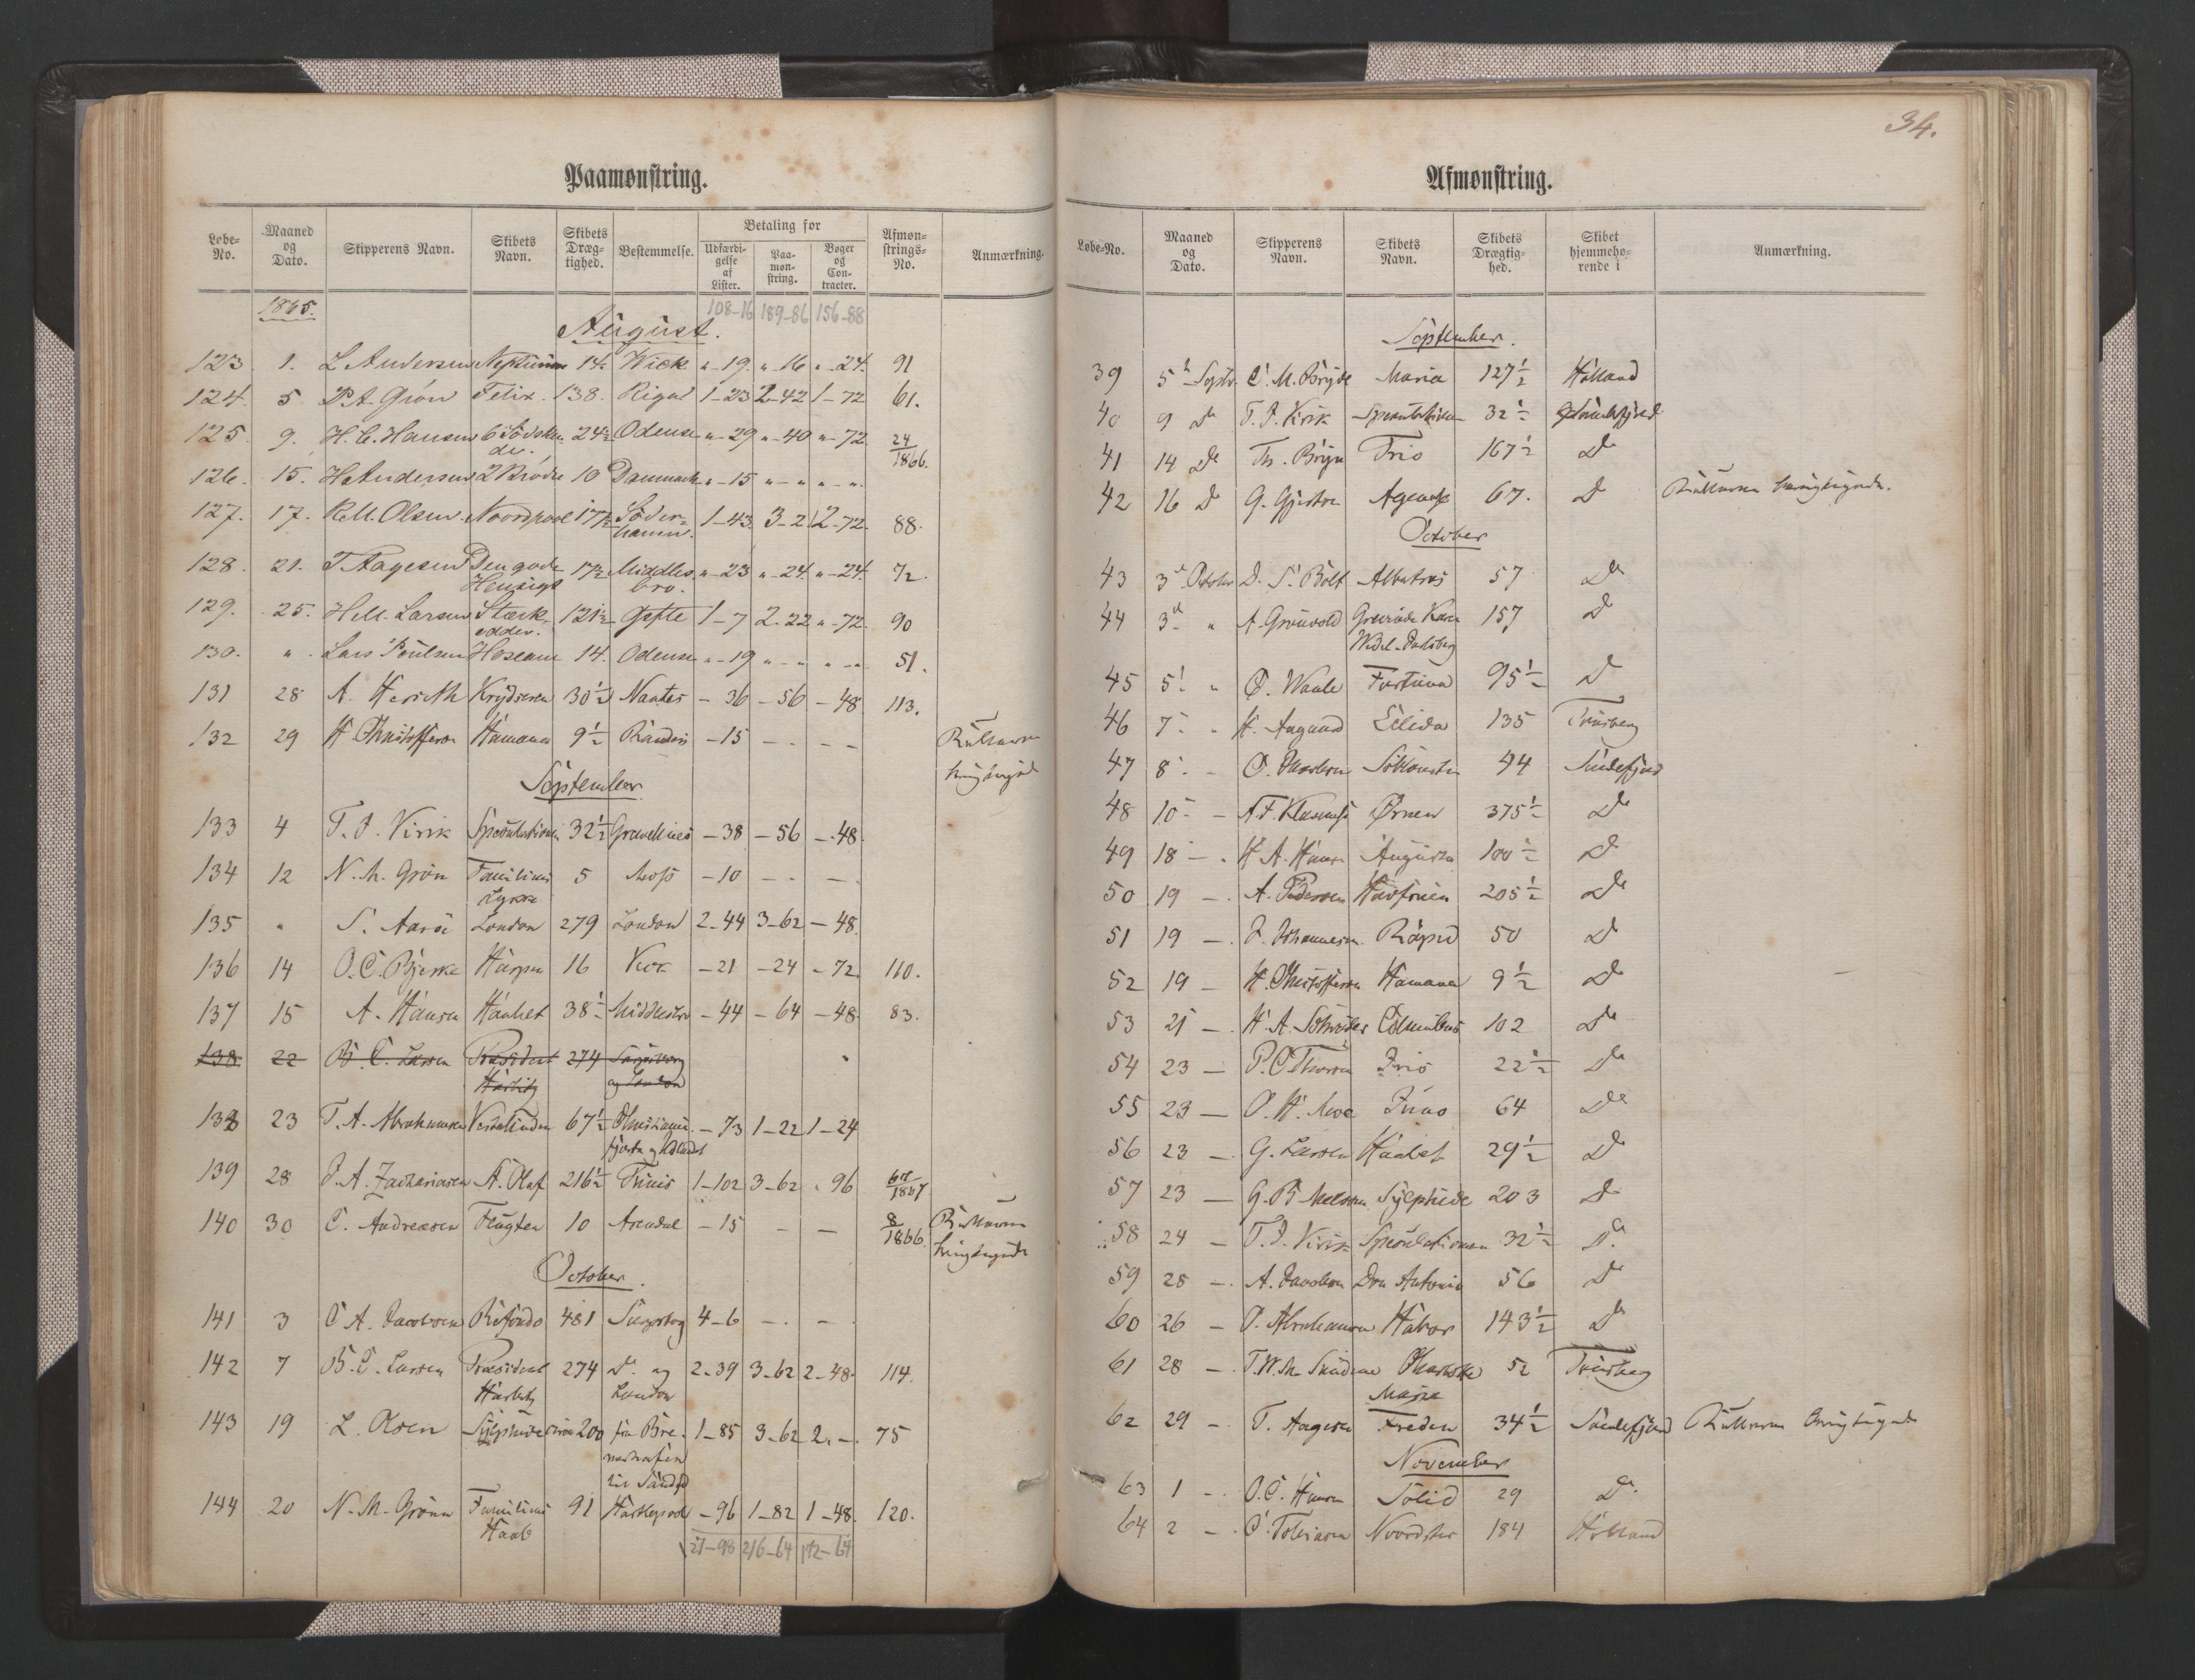 34.
Paamønstring.
Løbe-No. Maaned og Dato. Skipperens Navn. Skibets Navn. Skibets Dræg-tighed. Bestemmelse. Betaling for Udfærdi-gelse af Lister. Paa-møn-string. Bøger og Con-tracter. Afmøn-strings-No. Anmærkning.
1865. 108-16 189-86 156-88
August.
123 1. L Andersen Neptunus 14½ Wick " - 19. " - 16 " - 24. 91
124. 5 P. A. Grön Felix 138. Riga 1-23 2-42 1-72 61.
125 9. H. C. Hansen 6 Södsken-de. 24½ Odense " - 29 " - 40 " - 72. 24/1866.
126. 15. H Andersen 2 Brödre 10 Danmark " - 15 " - " " - "
127. 17. R. M. Olsen Noordpool 177½ Söder-hamn. 1-43 3-2 2-72. 88.
128. 21. T Aagesen Den gode Hensigt 17½ Middlesbro. " - 23 " - 24. " - 24. 72.
129. 25. H. M. Larsen Stærk-odder. 121½ Gefle 1-7 2-22 " - 72. 90
130. " Lars Poulsen Hoseam 14. Odense " - 19 " - " " - " 51.
131 28 A. Krydseren 30½ Nantes - 36 - 56 - 48 113.
132 29 H Christoffersen Hamona 9½ Randers - 15 - -
September
133 4 T. J. Virik Speculationen 32½ Gravelines - 38 - 56 - 48.
134 12 N. M. Grön Familiens Lykke 5 Moss - 10 - -
135 " S. London 279 London 2-44 3-62 - 48.
136 14 O. C. Bjerke Harpen 16 - 21 - 24 - 72. 110.
137 15 A. Hansen Haabet 38½ Middlesbro - 44 - 64 - 48. 83.
138 22 B. C. Larsen Præsident Harbitz 274 Sarpsborg og London
138 23 T. A. Abrahamsen 67½ Christiania-fjorden og - 73 1-22 1-24
139 28 J. A. Zachariasen St. Olaf 216½ 1-102 3-62 - 96
140 30 C. Andreasen Flugten 10 Arendal - 15 - - 8/1866.
October.
141 3 C A. Jacobsen 481 Sarpsborg 4-6 - -
142 7 B. C. Larsen Præsident Harbitz 274 Do og London 2-39 3-62 2-48. 114.
143 19 L. Olsen Sylphide circa 200 fra Bre-merhafen til Sandefjd 1-85 3-62 2. - 75
144 20 N. M. Grönn Familiens Haab 91 Hartlepool - 96 1-82 1-48. 120.
21-98 216-64 142-64
Afmønstring.
Løbe-No. Maaned og Dato. Skipperens Navn. Skibets Navn. Skibets Drægtig-hed. Skibet hjemmehø-rende i Anmærkning.
September.
39 5te Septr. C. M. Bryde Maria 127½ Holland
40 9 Do T. J. Virik Speculationen 32½ Sandefjord
41 14 Do Th. Bryn Trio 167½ Do
42 16 Do G. 67. Do
October
43 3de October D. S. Bolt Albatros 57 Do
44 3de " A. Grönvold Grevinde Karen Wedel-Jarlsberg 157 Do
45 5. " O. Waale Fortuna 95½ Do
46 7- " H. Aagaard Ellida 135 Tönsberg
47 8. - O. Jacobsen 44 Sandefjord
48 10 - A. F. Klavenæss Ørnen 375½ Do
49 18 - H. A. Hansen Augusta 100½ Do
50 19 - A. Pedersen Havfruen 205½ Do
51 19 - J. Johannesen Rapid 50 Do
52 19 - H. Christoffersen Hamona 9½ Do
53 21 - H. A. Schröder Columbus 102 Do
54 23 - P. C. Thorsen 22½ Do
55 23 - O. H. Moe Juno 64 Do
56 23 - G. Larsen Haabet 29½ Do
57 23 - G. B. Sylphide 203 Do
58 24 - T. J. Virik Speculationen 32½ Do
59 25 - A. Jacobsen Don Antonio 56 Do
60 26 - O. Abrahamsen 143½ Do
61 28 - T. W. M. Charlotte Marie 52 Tönsberg
62 29 - T. Aagesen Freden 34½ Sandefjord
November
63 1 - O. C. Hansen Solid 29 Do
64 2 - C. Tobiasen Noordster 184 Holland